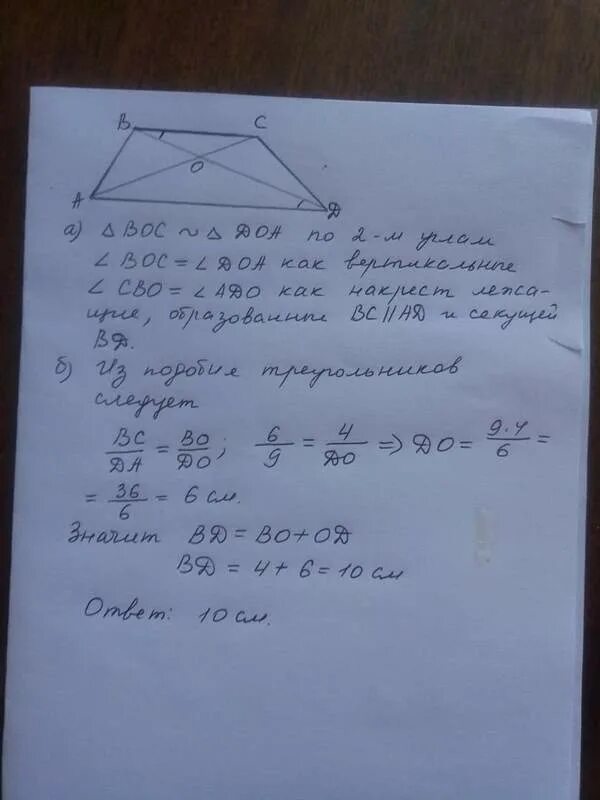 B C
O
A Д
а) △ BOC ~ △ DOA по 2-м углам
∠ BOC = ∠ DOA как вертикальные
∠ CBO = ∠ ADO как накрест лежа-
щие, образованные BC || AD и секущей
BD.
б) Из подобия треугольников
следует
BC/DA = BO/DO; 6/9 = 4/DO => DO = 9·4/6 =
= 36/6 = 6 см.
Значит BD = BO + OD
BD = 4 + 6 = 10 см
Ответ: 10 см.